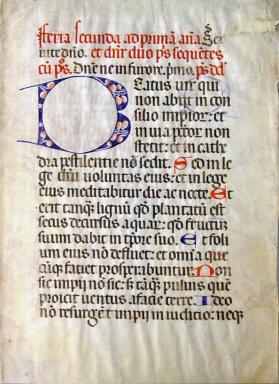 feria secunda ad primā añа Ser
uite dño. et dñr duo pš sequētes
cū pš. Dñe ne in furore. pmo. pš dd
Eatus uir qui
non abijt in con
silio impior: et
in uia pctor non
stetit: et in cathe
dra pestilentie nō sedit. Sed in le
ge dñi uoluntas eius: et in lege
eius meditabitur die ac nocte. Et
erit tanq̄ lignū qd plantatū est
secus decursus aquar: qd fructū
suum dabit in tpore suo. Et foli
um eius nō defluet: et omnia que
cūq faciet prosperabuntur. Non
sic impij nō sic: s tanq̄ puluis quē
proicit uentus a facie terre. Ideo
nō resurgēt impij in iudicio: neq